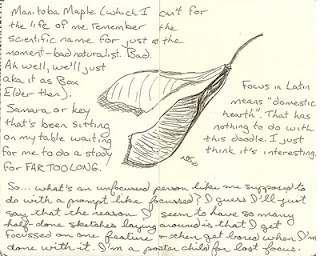 Manitoba Maple (which I can't for
the life of me remember the
scientific name for just at the
moment - bad naturalist. Bad.
Ah well, we'll just
aka it as Box
Elder then).
Samara or key
that's been sitting
on my table waiting
for me to do a study
for FAR TOO LONG.
Focus in Latin
means "domestic
hearth". That has
nothing to do with
this doodle. I just
think it's interesting.
So... what's an unfocussed person like me supposed to
do with a prompt like focussed? I guess I'll just
say that the reason I seem to have so many
half-done sketches laying around is that I get
focussed on one feature & then get bored when I'm
done with it. I'm a poster child for lost focus.